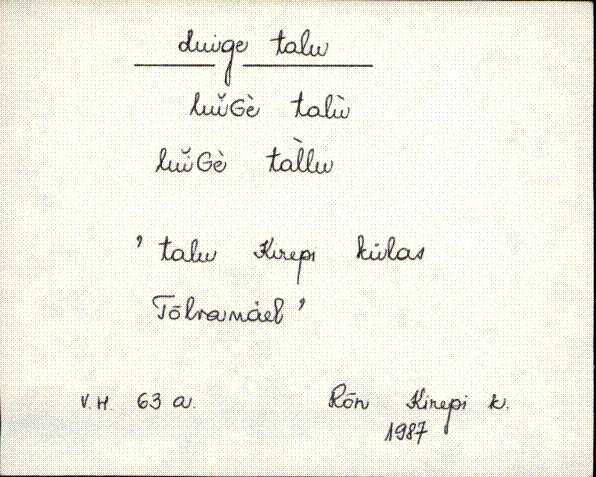 Luige talu
luĭGè talù
luĭGè tàllu
’ talu Kirepi külas
Tõlvamäel ’
V.H. 63 a.
Rõn Kirepi k.
1987